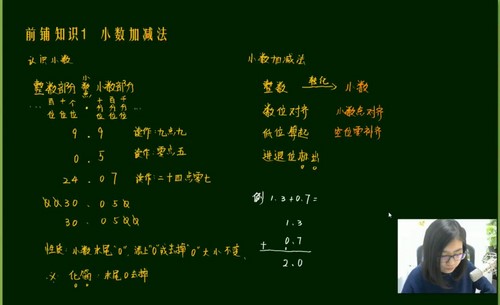 前铺知识1 小数加减法
认识小数
整数部分 小数点 小数部分
… 百位 十位 个位 · 十分位 百分位 千分位 …
9 . 9 读作:九点九
0 . 5 读作:零点五
24 . 07 读作:二十四点零七
0030 . 0500
30 . 0500
性质:小数末尾"0",添上"0"或去掉"0"大小不变
化简:末尾0去掉
小数加减法
整数 转化 小数
数位对齐 小数点对齐
低位算起 空位零补齐
进退位标出
例 1.3+0.7=
1.3
+ 0.7
2.0